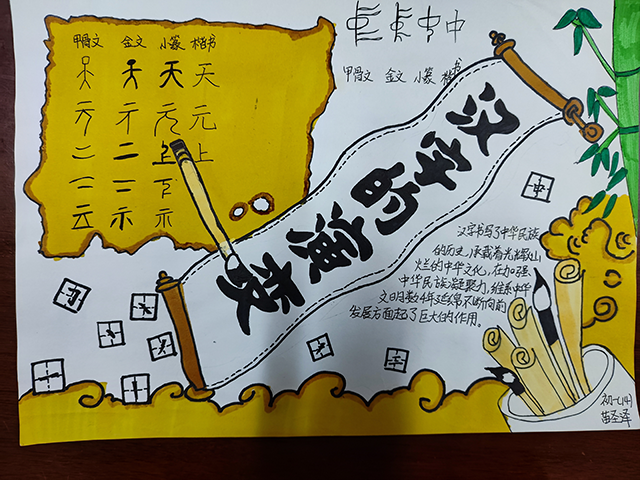 甲骨文 金文 小篆 楷书
天 天
元
上
下
示 示
中
甲骨文 金文 小篆 楷书
汉字的演变
中
汉字书写了中华民族
的历史,承载着光辉灿
烂的中华文化,在加强
中华民族凝聚力,维系中华
文明数千年延绵不断向前
发展方面起了巨大的作用。
初一(14)
苗圣泽